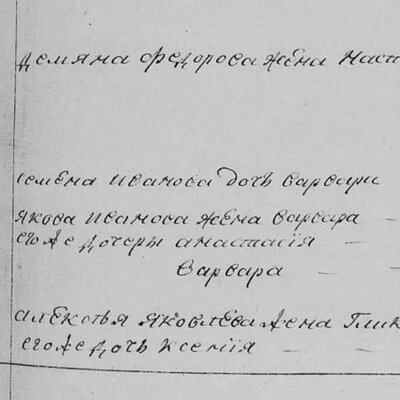 Демяна Федорова жена Наст
семена Иванова дочь варвара
якова Иванова жена варвара
егоже дочеры анастасія
варвара
алексѣя яковлева жена Глик
егоже дочь ксенія